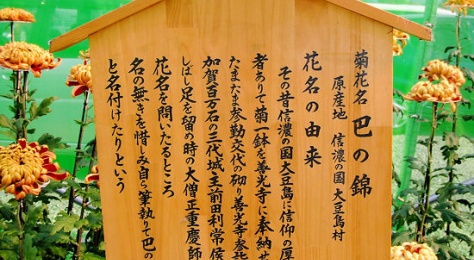 菊花名 巴の錦
原産地 信濃の国 大豆島村
花名の由来
その昔信濃の国大豆島に信仰の厚
者ありて菊一鉢を善光寺に奉納せ
たまたま参勤交代の砌り善光寺参
加賀百万石の三代城主前田利常侯
しばし足を留め時の大僧正重慶師
花名を問いたるところ
名の無きを惜しみ自ら筆執りて巴の
と名付けたりという